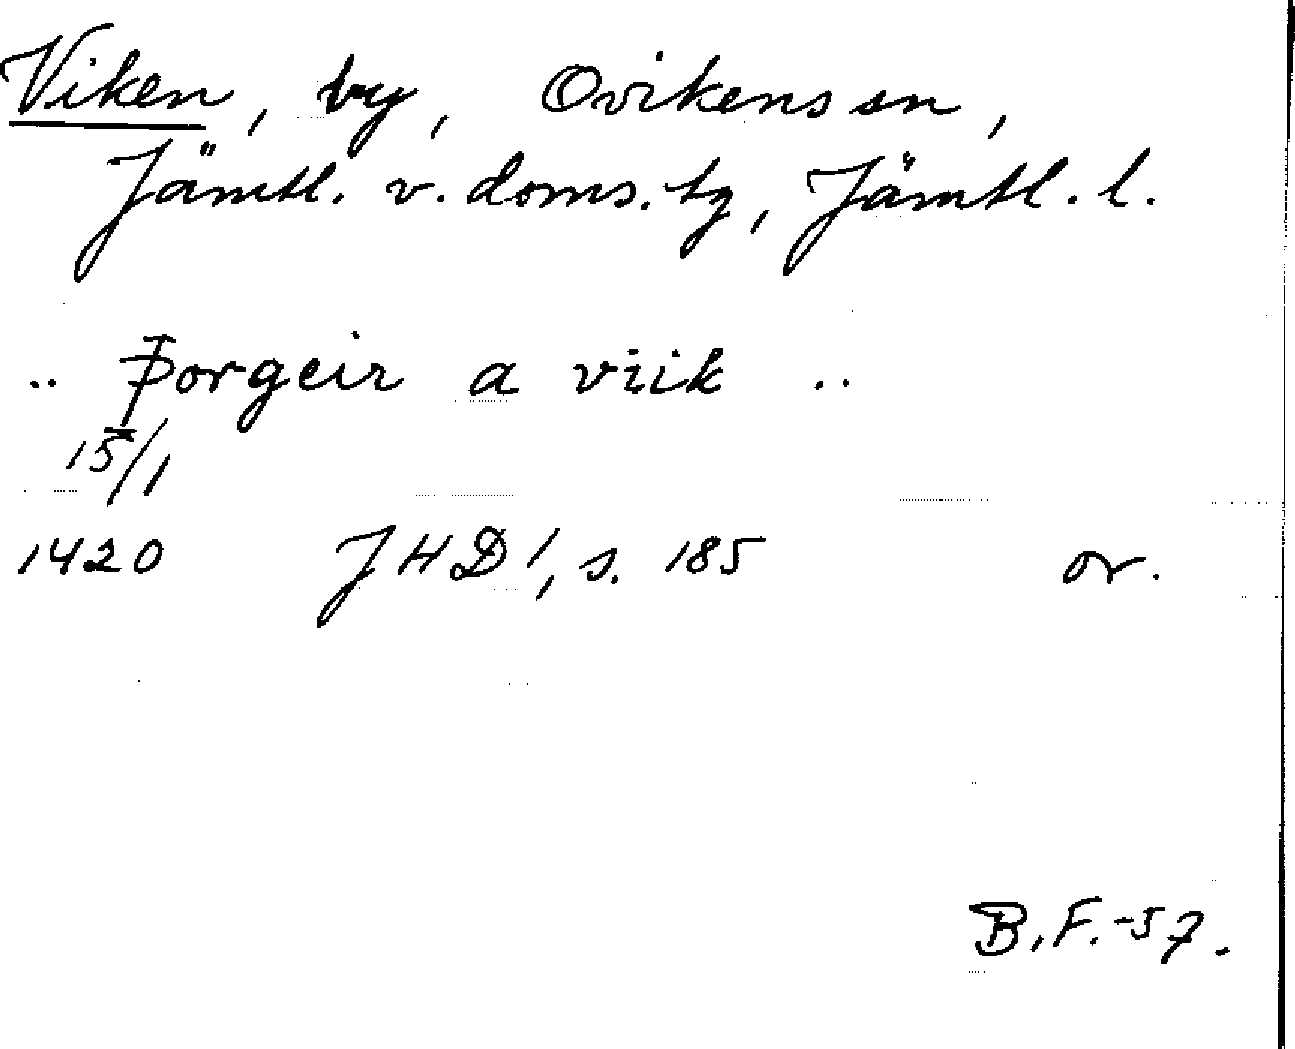 Viken, by, Ovikens sn,
Jämtl. v. doms. tg, Jämtl. l.
.. Þorgeir a viik ..
15/1
1420 JHD 1, s. 185 or.
B.F.-57.